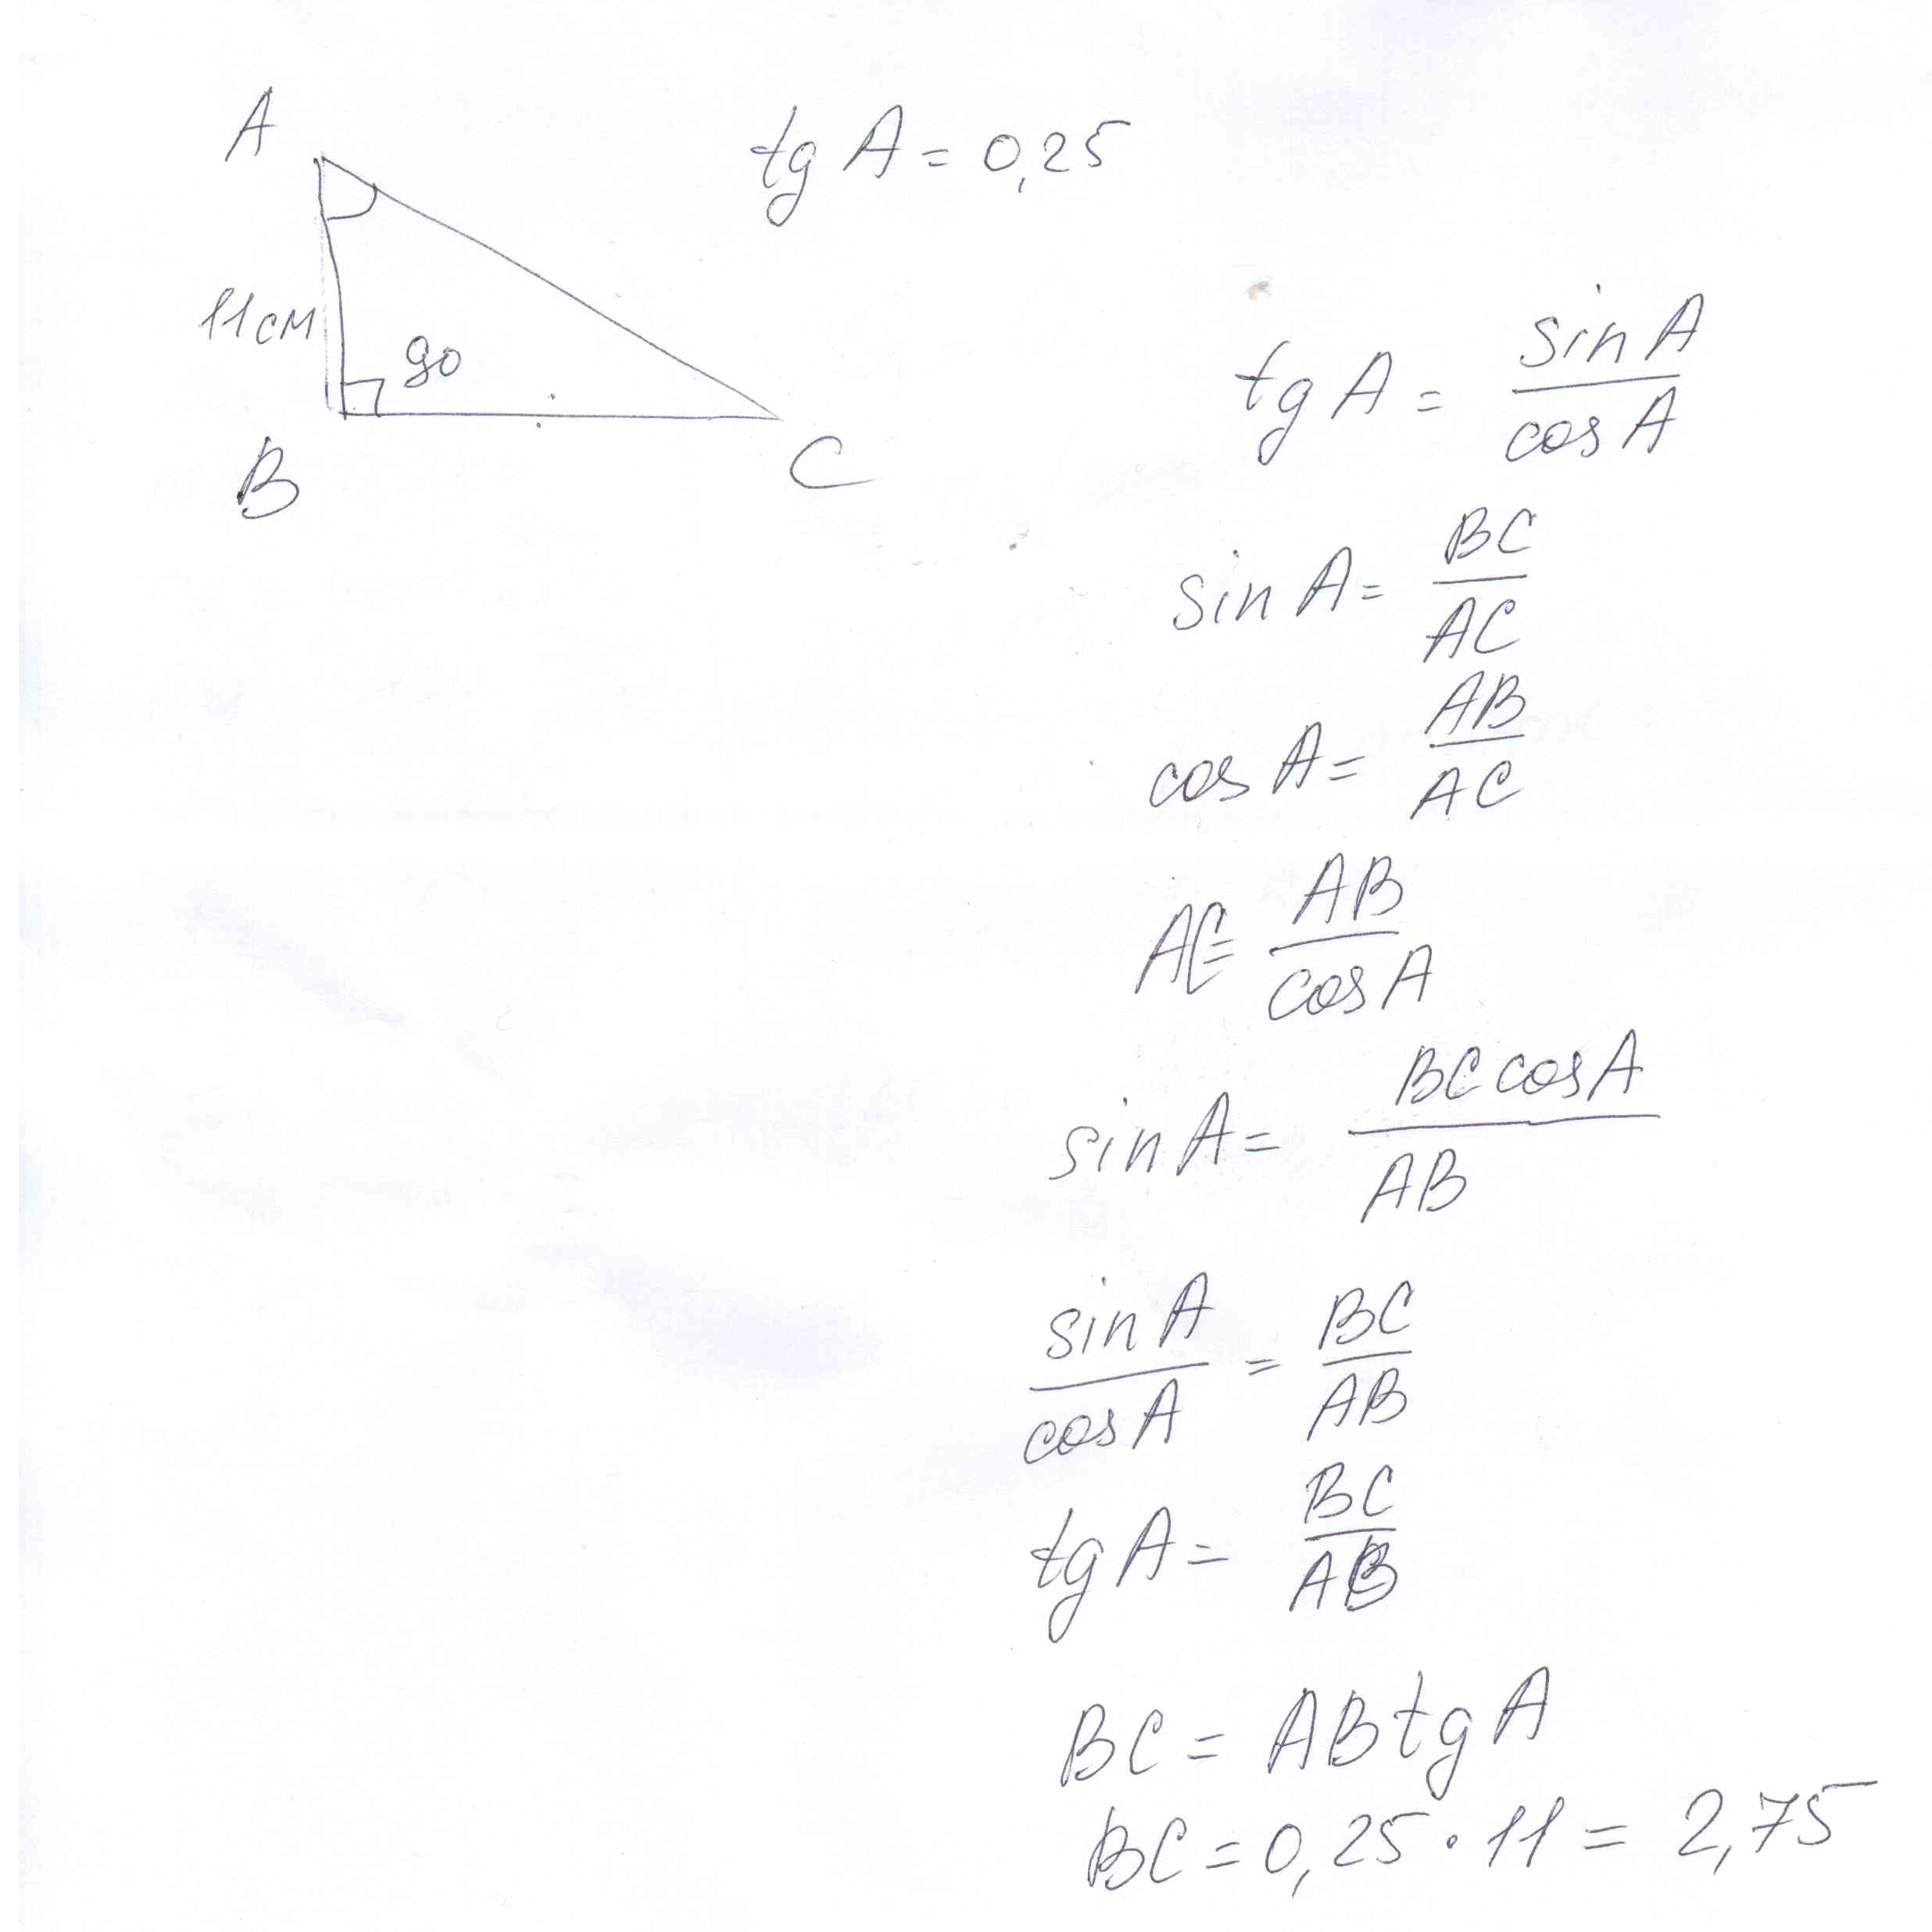 A
tg A = 0,25
11см
90
B
C
tg A = sin A / cos A
sin A = BC / AC
cos A = AB / AC
AC = AB / cos A
sin A = BC cos A / AB
sin A / cos A = BC / AB
tg A = BC / AB
BC = AB tg A
BC = 0,25 · 11 = 2,75